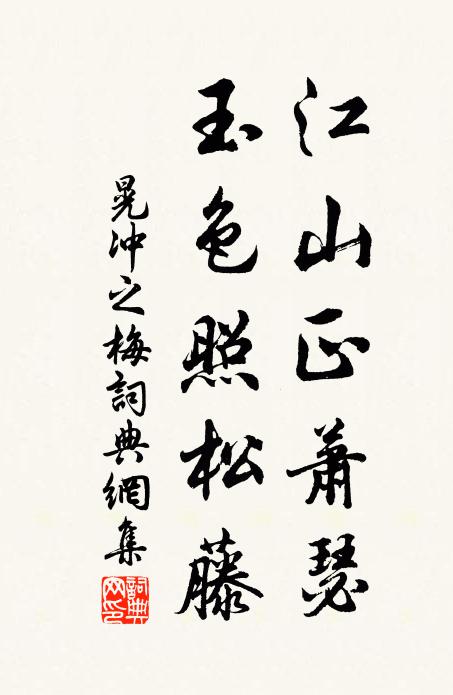 江山正蕭瑟
玉色照松藤
晁冲之梅詞典網集
詞典網印